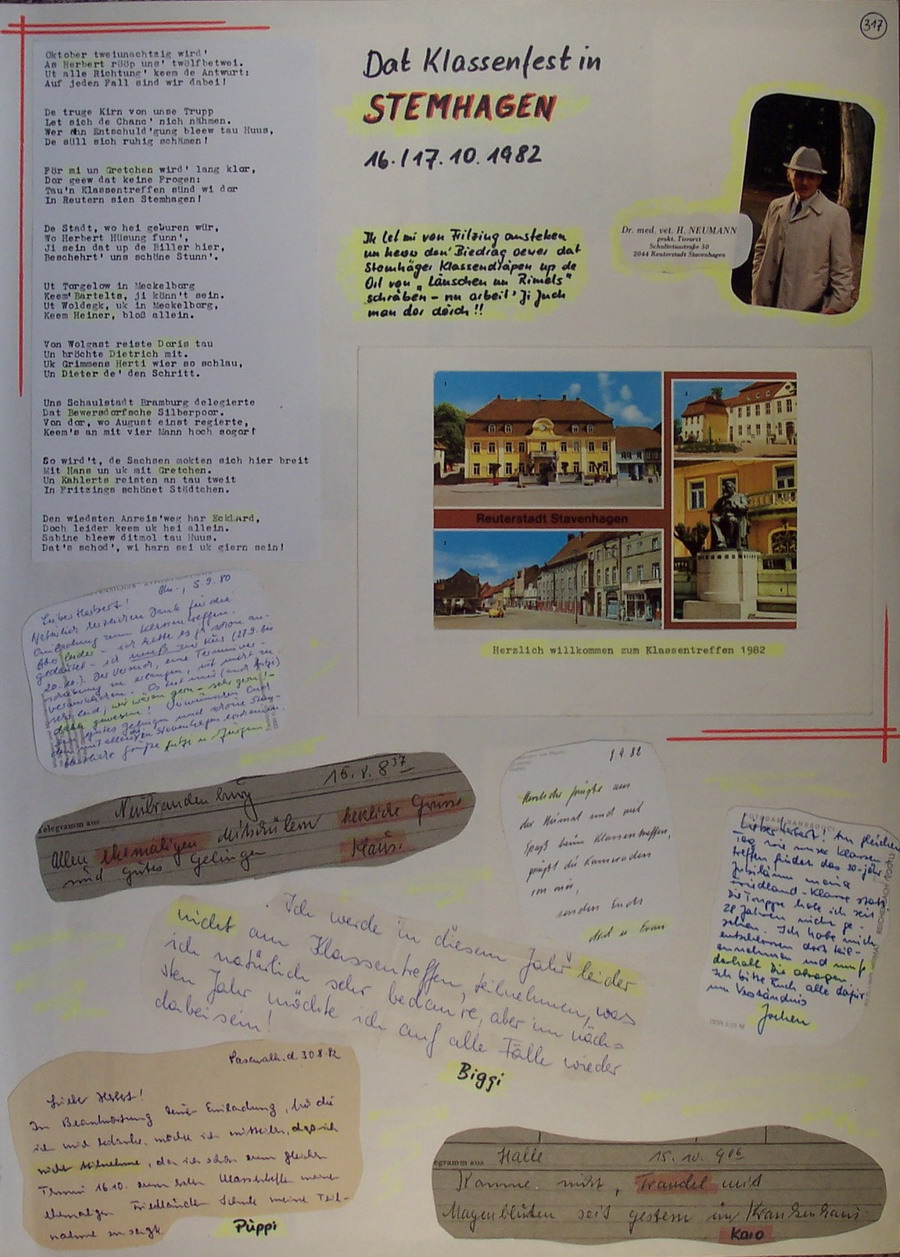 317
Oktober tweiunachtzig wird'
As Herbert rööp uns' twölfbetwei.
Ut alle Richtung' keem de Antwurt:
Auf jeden Fall sind wir dabei!
De truge Kirn von unse Trupp
Let sich de Chanc' nich nähmen.
Wer ahn Entschuld'gung bleew tau Huus,
De süll sich ruhig schämen!
För mi un Gretchen wird' lang klor,
Dor geew dat keine Frogen:
Tau'n Klassentreffen sünd wi dor
In Reutern sien Stemhagen!
De Stadt, wo hei geburen wür,
Wo Herbert Hüsung funn',
Ji sein dat up de Biller hier,
Beschehrt' uns schöne Stunn'.
Ut Torgelow in Meckelborg
Keem' Bartelts, ji künn't sein.
Ut Woldegk, uk in Meckelborg,
Keem Heiner, bloß allein.
Von Wolgast reiste Doris tau
Un bröchte Dietrich mit.
Uk Grimmens Herti wier so schlau,
Un Dieter de' den Schritt.
Uns Schaulstadt Bramburg delegierte
Dat Bewersdorfsche Silberpoor.
Von dor, wo August einst regierte,
Keem's an mit vier Mann hoch sogor!
So wird't, de Sachsen mokten sich hier breit
Mit Hans un uk mit Gretchen.
Un Kahlerts reisten an tau tweit
In Fritzings schönet Städtchen.
Den wiedsten Anreis'weg har Eckhard,
Doch leider keem uk hei allein.
Sabine bleew ditmol tau Huus.
Dat's schod', wi harn sei uk giern sein!
Dat Klassenfest in
STEMHAGEN
16./17.10.1982
Ik let mi von Fritzing ansteken
un heww den' Biedrag oewer dat
Stemhäger Klassendräpen up de
Ort von „Läuschen un Rimels"
schräben – nu arbeit' Ji Juch
man dor dörch!!
Dr. med. vet. H. NEUMANN
prakt. Tierarzt
Schultetusstraße 30
2044 Reuterstadt Stavenhagen
Reuterstadt Stavenhagen
Herzlich willkommen zum Klassentreffen 1982
5.9.80
Lieber Herbert!
Herzlichen Dank für die
Einladung zum Klassentreffen.
Telegramm aus Neubrandenburg 15.X. 8 37
Allen ehemaligen Mitschülern herzliche Grüsse
und gutes Gelingen Klaus.
9.82
Herzliche Grüße aus
der Heimat und viel
Spaß beim Klassentreffen,
grüßt die Kameraden
von mir,
senden Euch
Lieber Herbert! Am gleichen
Tag wie unser Klassen-
treffen findet das 30-jähr.
Jubiläum meiner
Friedland-Klasse statt.
Die Truppe habe ich seit
28 Jahren nicht ge-
sehen. Ich habe mich
entschlossen dort teil-
zunehmen und muß
deshalb die absagen
Ich bitte Euch alle dafür
um Verständnis
Jochen
Ich werde in diesem Jahr leider
nicht am Klassentreffen teilnehmen, was
ich natürlich sehr bedaure, aber im näch-
sten Jahr möchte ich auf alle Fälle wieder
dabei sein!
Biggi
Pasewalk, d. 30.8.82
Lieber Herbert!
In Beantwortung Deiner Einladung, für die
ich mich bedanke, möchte ich mitteilen, daß ich
nicht teilnehme, da ich schon zum gleichen
Termin 16.10. zum Klassentreffen meiner
ehemaligen Friedländer Schule meine Teil-
nahme zusagte.
Püppi
egramm aus Halle 15.10. 9 06
Komme nicht, Traudel mit
Magenbluten seit gestern im Krankenhaus
Karo